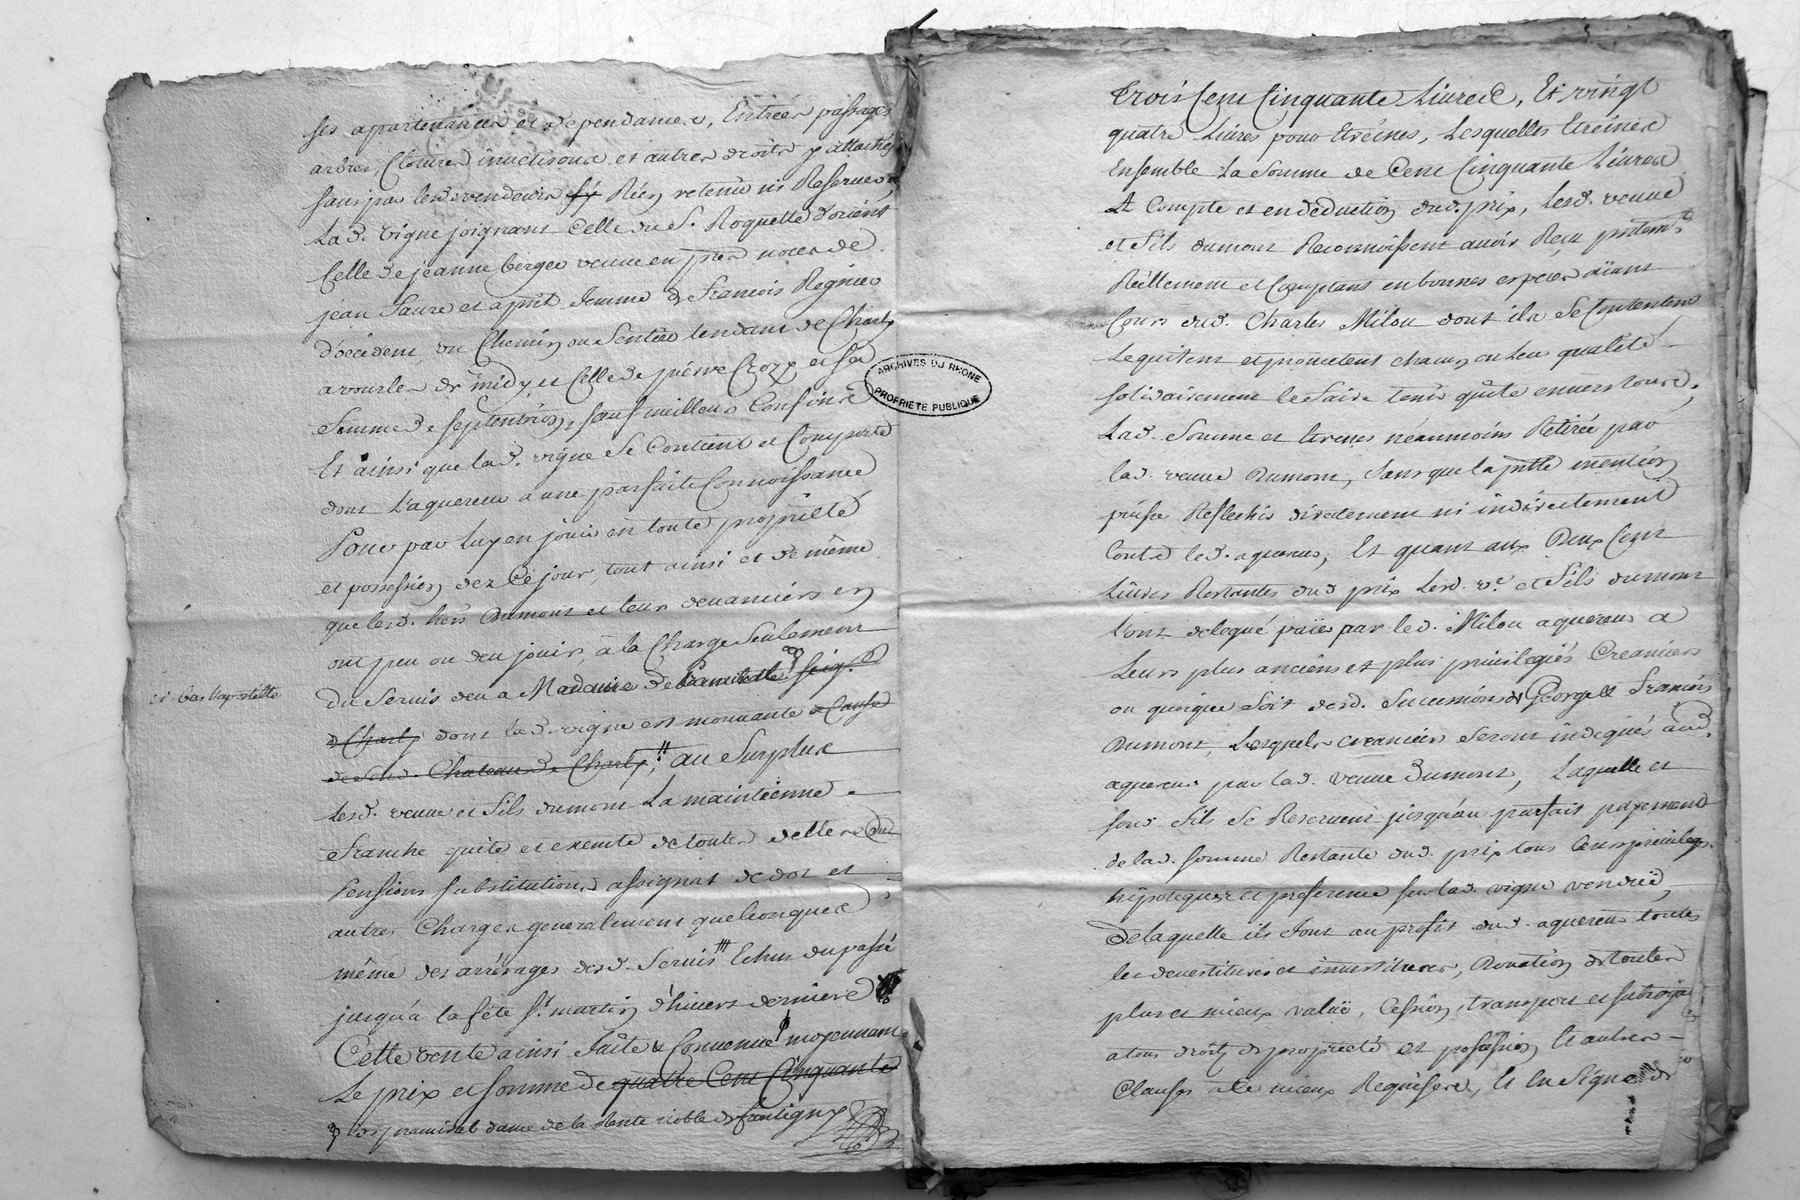 ses apartenances et dependances, Entrées passages
arbres, Cloures inuetisons et autres droits y attachés
sans par lesd. vendeurs s'y Rién retenir ni Reserver,
La d. vigne joignant Celle du Sr. Roquette d'orient
Celle de jeanne berger veuve en pres noces de
jean Faure et aprnt. femme de Francois Regnier
d'occident, un Chemin ou Sentier tendant de Charly
a vourles de midy, et Celle de piérre Crozy et sa
femme de septentrion, sauf meilleurs Confins
Et ainsi que la d. vigne Se Contient et Comporte
dont L'aquereur a une parfaite Connoissance
Pour par luy en jouir en toute propriété
et possession dez Ce jour, tout ainsi et de même
que lesd. hers Dumont et leur devanciers en
ont peu ou deu jouir, a la Charge Seulement
du Servis deu a Madame de seig.
ci bas
de Charly dont la d. vigne est mouvante a Cause
de Sond. Chateau de Charly, au Surplus
Lesd. veuve et fils dumont La maintienne
franche quite et exemte de toutes dettes
Pensions substitutions assignat de dot et
autres Charges generalement quelconques
même des arrérages desd. Servis Echus du passé
jusqu'a la féte St. martin d'hivert derniere
Cette vente ainsi faite & Convenue moyennant
Le prix et somme de quatre Cent Cinquante
dame de la Rente noble de
ARCHIVES DU RHONE
PROPRIETE PUBLIQUE
Trois Cent Cinquante Livres, Et vingt
quatre Livres pour Etréines, Lesquelles Etreines
Ensemble La Somme de Cent Cinquante Livres
A Compte et en deduction dud. prix, lesd. veuve
et fils dumont Reconnoissent avoir Reçu prntemt.
Réellement et Comptant en bonnes especes aïant
Cours dud. Charles Milou dont ils Se Contentent
Le quitent et prometent chacun en Leur qualité
solidairement le faire tenir quite envers tous,
Lad. Somme et Etrenes néanmoins Retirée par
lad. veuve Dumont, sans que la prnte mention
puisse Reflechir directement ni indirectement
Contre led. aquereur, Et quant aux Deux Cent
Livres Restantes dud. prix Lesd. ve. et fils dumont
L'ont delegué païer par led. Milou aquereur a
Leurs plus anciens et plus privilegiés Creanciers
ou quoique Soit desd. Successions de George & Francois
Dumont, Lesquels creanciers Seront indiqués aud.
aquereur par lad. veuve Dumont, Laquelle et
sond. fils Se Reservent jusqu'au parfait payement
de lad. somme Restante dud. prix tous Leurs privileges
hipoteques et preference sur lad. vigne vendüe,
De laquelle ils font au profit dud. aquereur toutes
les devestitures et investitures, Donation de toutes
plus et mieux value, Cession, transport et
a tous droits de proprieté et possession Et autres
Clauses de mieux Requises, Et en Signe de